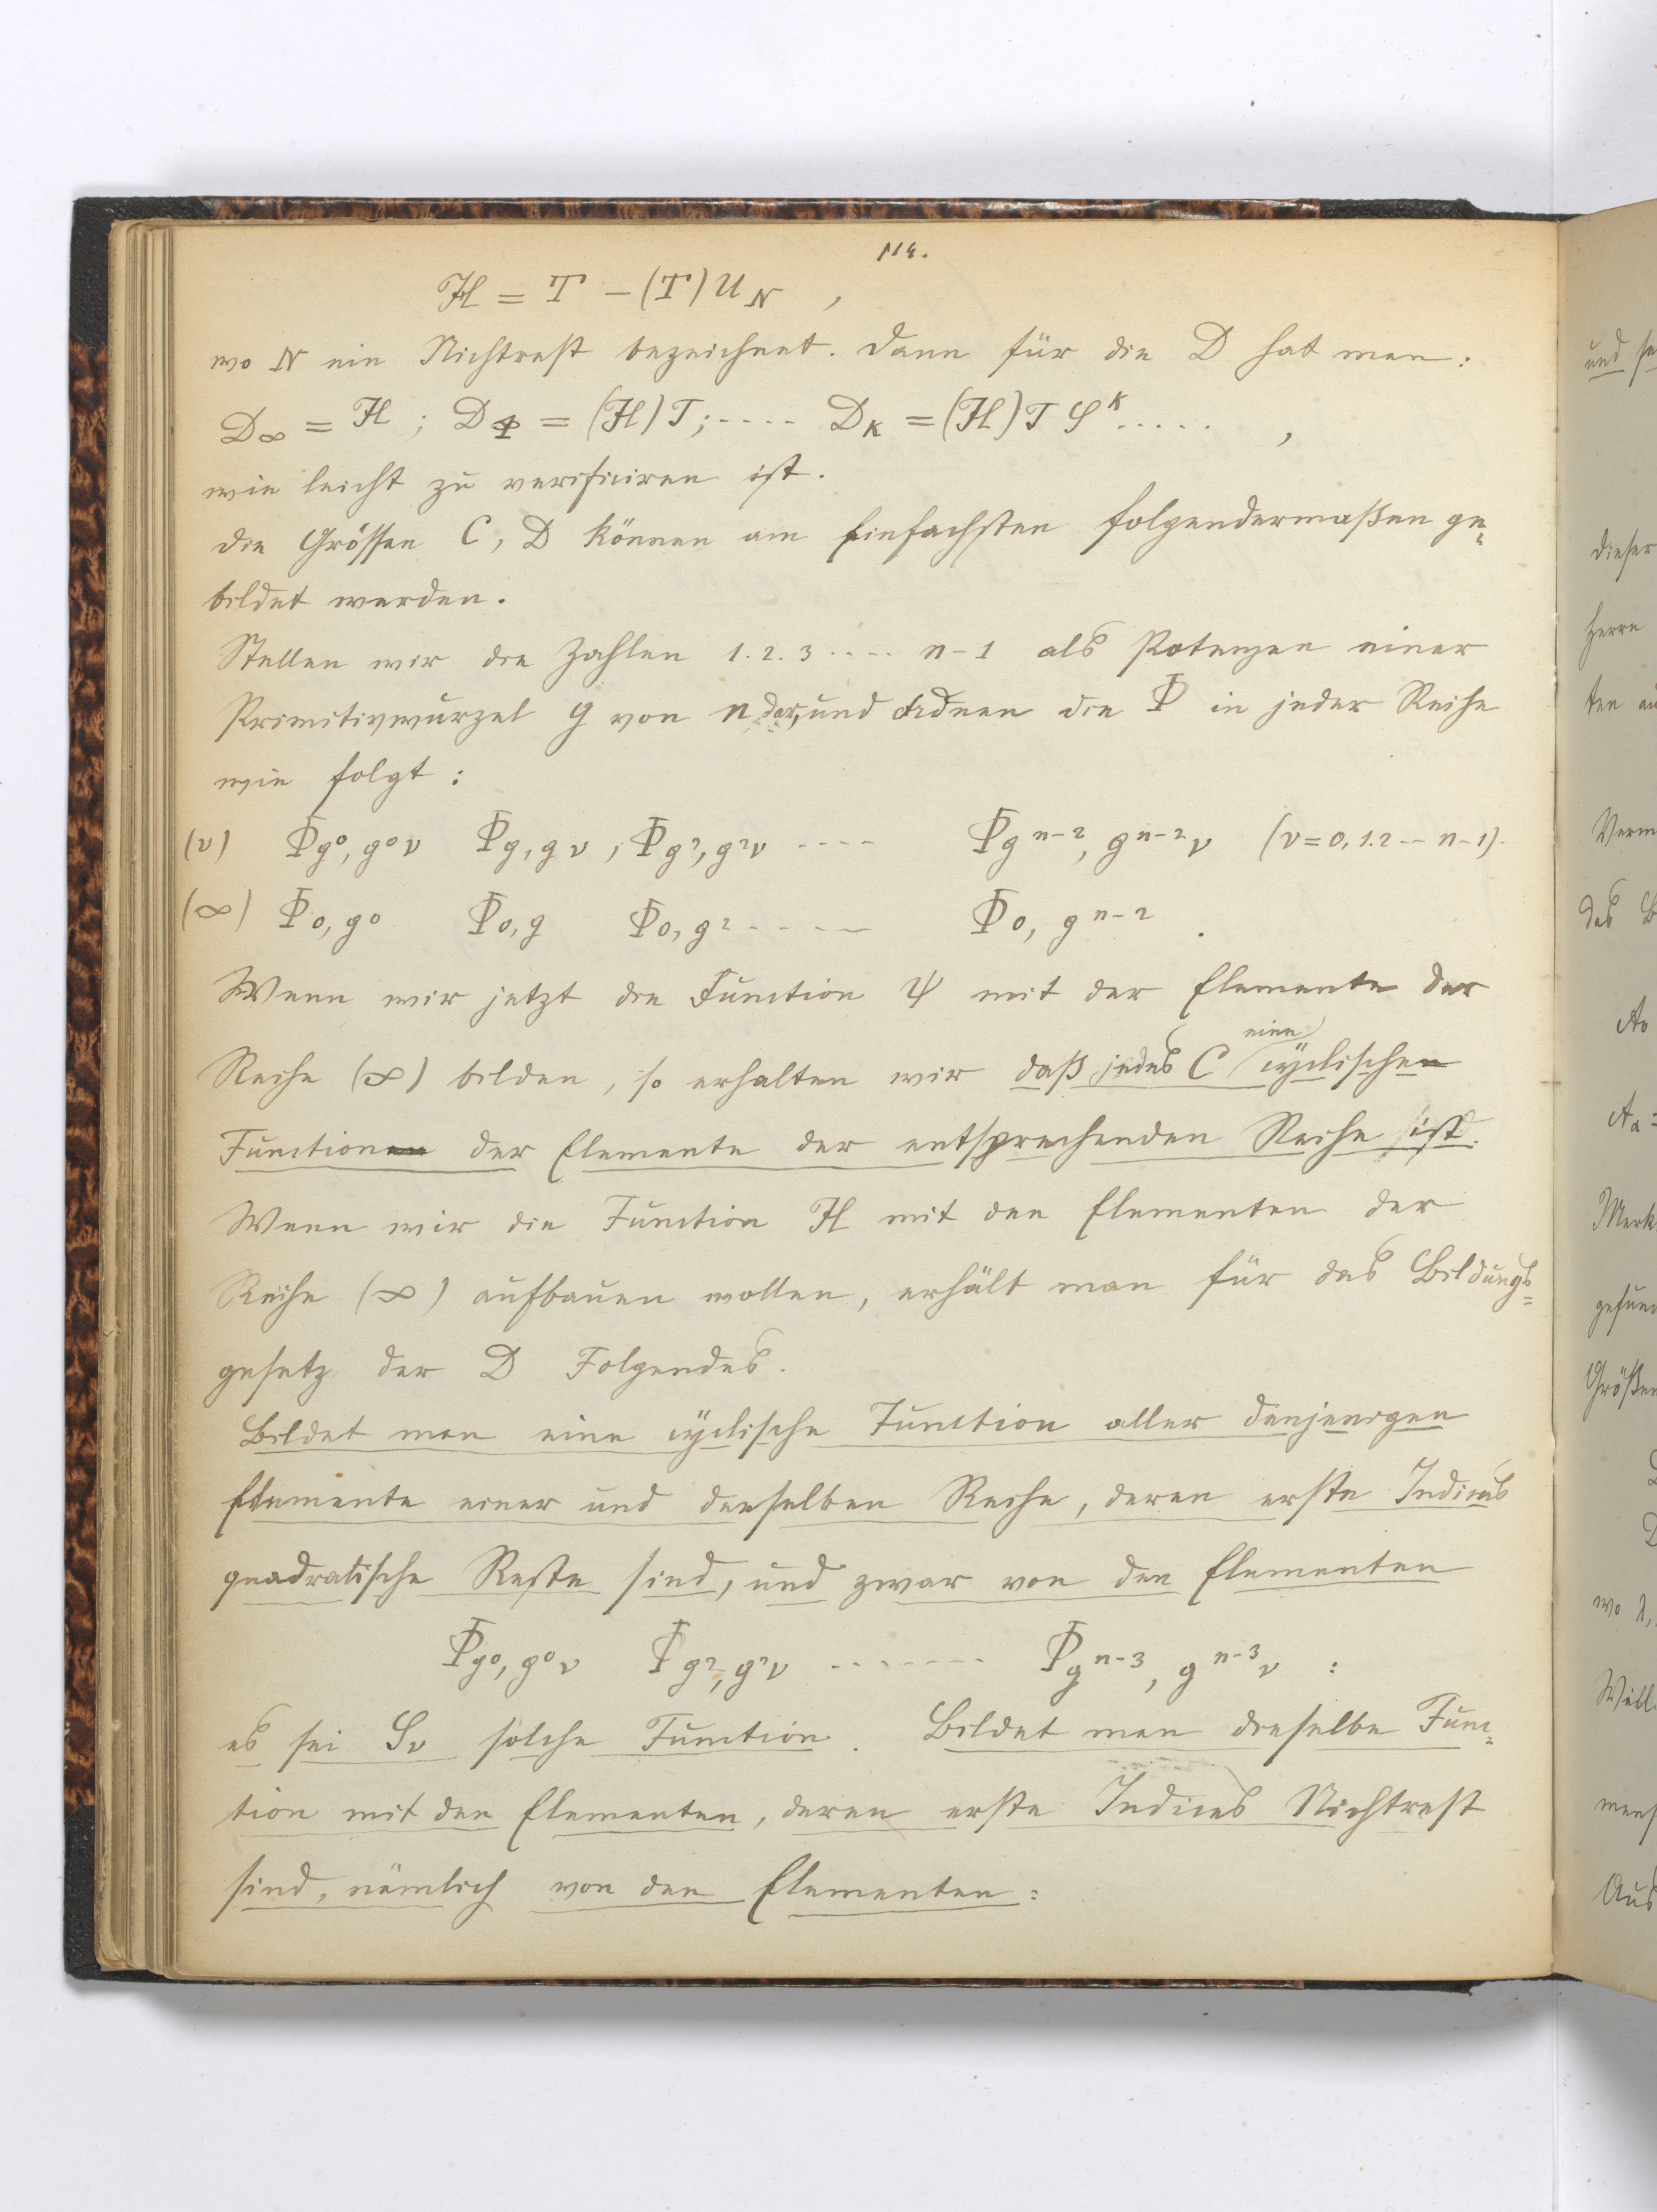 114.
H = T – (T) U_N ,
wo N ein Nichtrest bezeichnet. Dann für die D hat man:
D_∞ = H ; D_Φ = (H) T ; ---- D_K = (H) T S^K ..... ,
wie leicht zu verificiren ist.
Die Grössen C, D können am Einfachsten folgendermaßen ge=
bildet werden.
Stellen wir die Zahlen 1. 2. 3 ---- n-1 als Potenzen einer
Primitivwurzel g von n dar, und ordnen die Φ in jeder Reihe
wie folgt :
(ν) Φ_{g^0, g^0 ν} Φ_{g, g ν} , Φ_{g^2, g^2 ν} ---- Φ_{g^{n-2}, g^{n-2} ν} (ν = 0, 1. 2 -- n-1).
(∞) Φ_{0, g^0} Φ_{0, g} Φ_{0, g^2} ----- Φ_{0, g^{n-2}} .
Wenn wir jetzt die Function Ψ mit der Elemente der
Reihe (∞) bilden, so erhalten wir daß jedes C eine cyclischen
Functionen der Elemente der entsprechenden Reihe ist.
Wenn wir die Function H mit den Elementen der
Reihe (∞) aufbauen wollen, erhält man für das Bildungs=
gesetz der D Folgendes.
Bildet man eine cyclische Function aller denjenigen
Elemente einer und derselben Reihe, deren erste Indices
quadratische Reste sind, und zwar von den Elementen
Φ_{g^0, g^0 ν} Φ_{g^2, g^2 ν} ------- Φ_{g^{n-3}, g^{n-3} ν} :
es sei S_ν solche Function. Bildet man dieselbe Func=
tion mit den Elementen, deren erste Indices Nichtrest
sind, nämlich von den Elementen:
und se
dieser
Herrn
ten au
Verm
das B
A_0
A_a =
Merk
gefun
Größen
D
wo λ,
Will
Aus